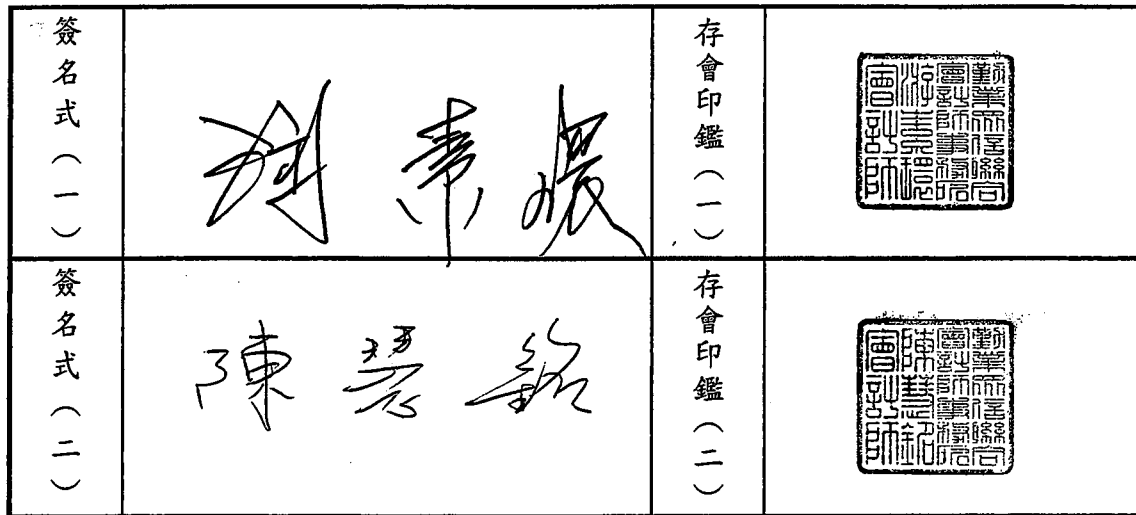 簽名式（一）
游素環
存會印鑑（一）
勤業眾信聯合
會計師事務所
游素環
會計師
簽名式（二）
陳慧銘
存會印鑑（二）
勤業眾信聯合
會計師事務所
陳慧銘
會計師